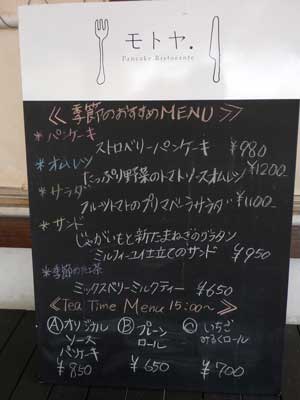 モトヤ.
Pancake Ristorante
≪季節のおすすめMENU≫
*パンケーキ
ストロベリーパンケーキ ¥980
*オムレツ
たっぷり野菜のトマトソースオムレツ ¥1200
*サラダ
フルーツトマトのプリマベーラサラダ ¥1100
*サンド
じゃがいもと新たまねぎのグラタン
ミルフィーユ仕立てのサンド ¥950
*季節のお茶
ミックスベリーミルクティー ¥650
≪Tea Time Menu 15:00~≫
Ⓐオリジナル Ⓑプレーン Ⓒいちご
ソース ロール みるくロール
パンケーキ
¥850 ¥650 ¥700